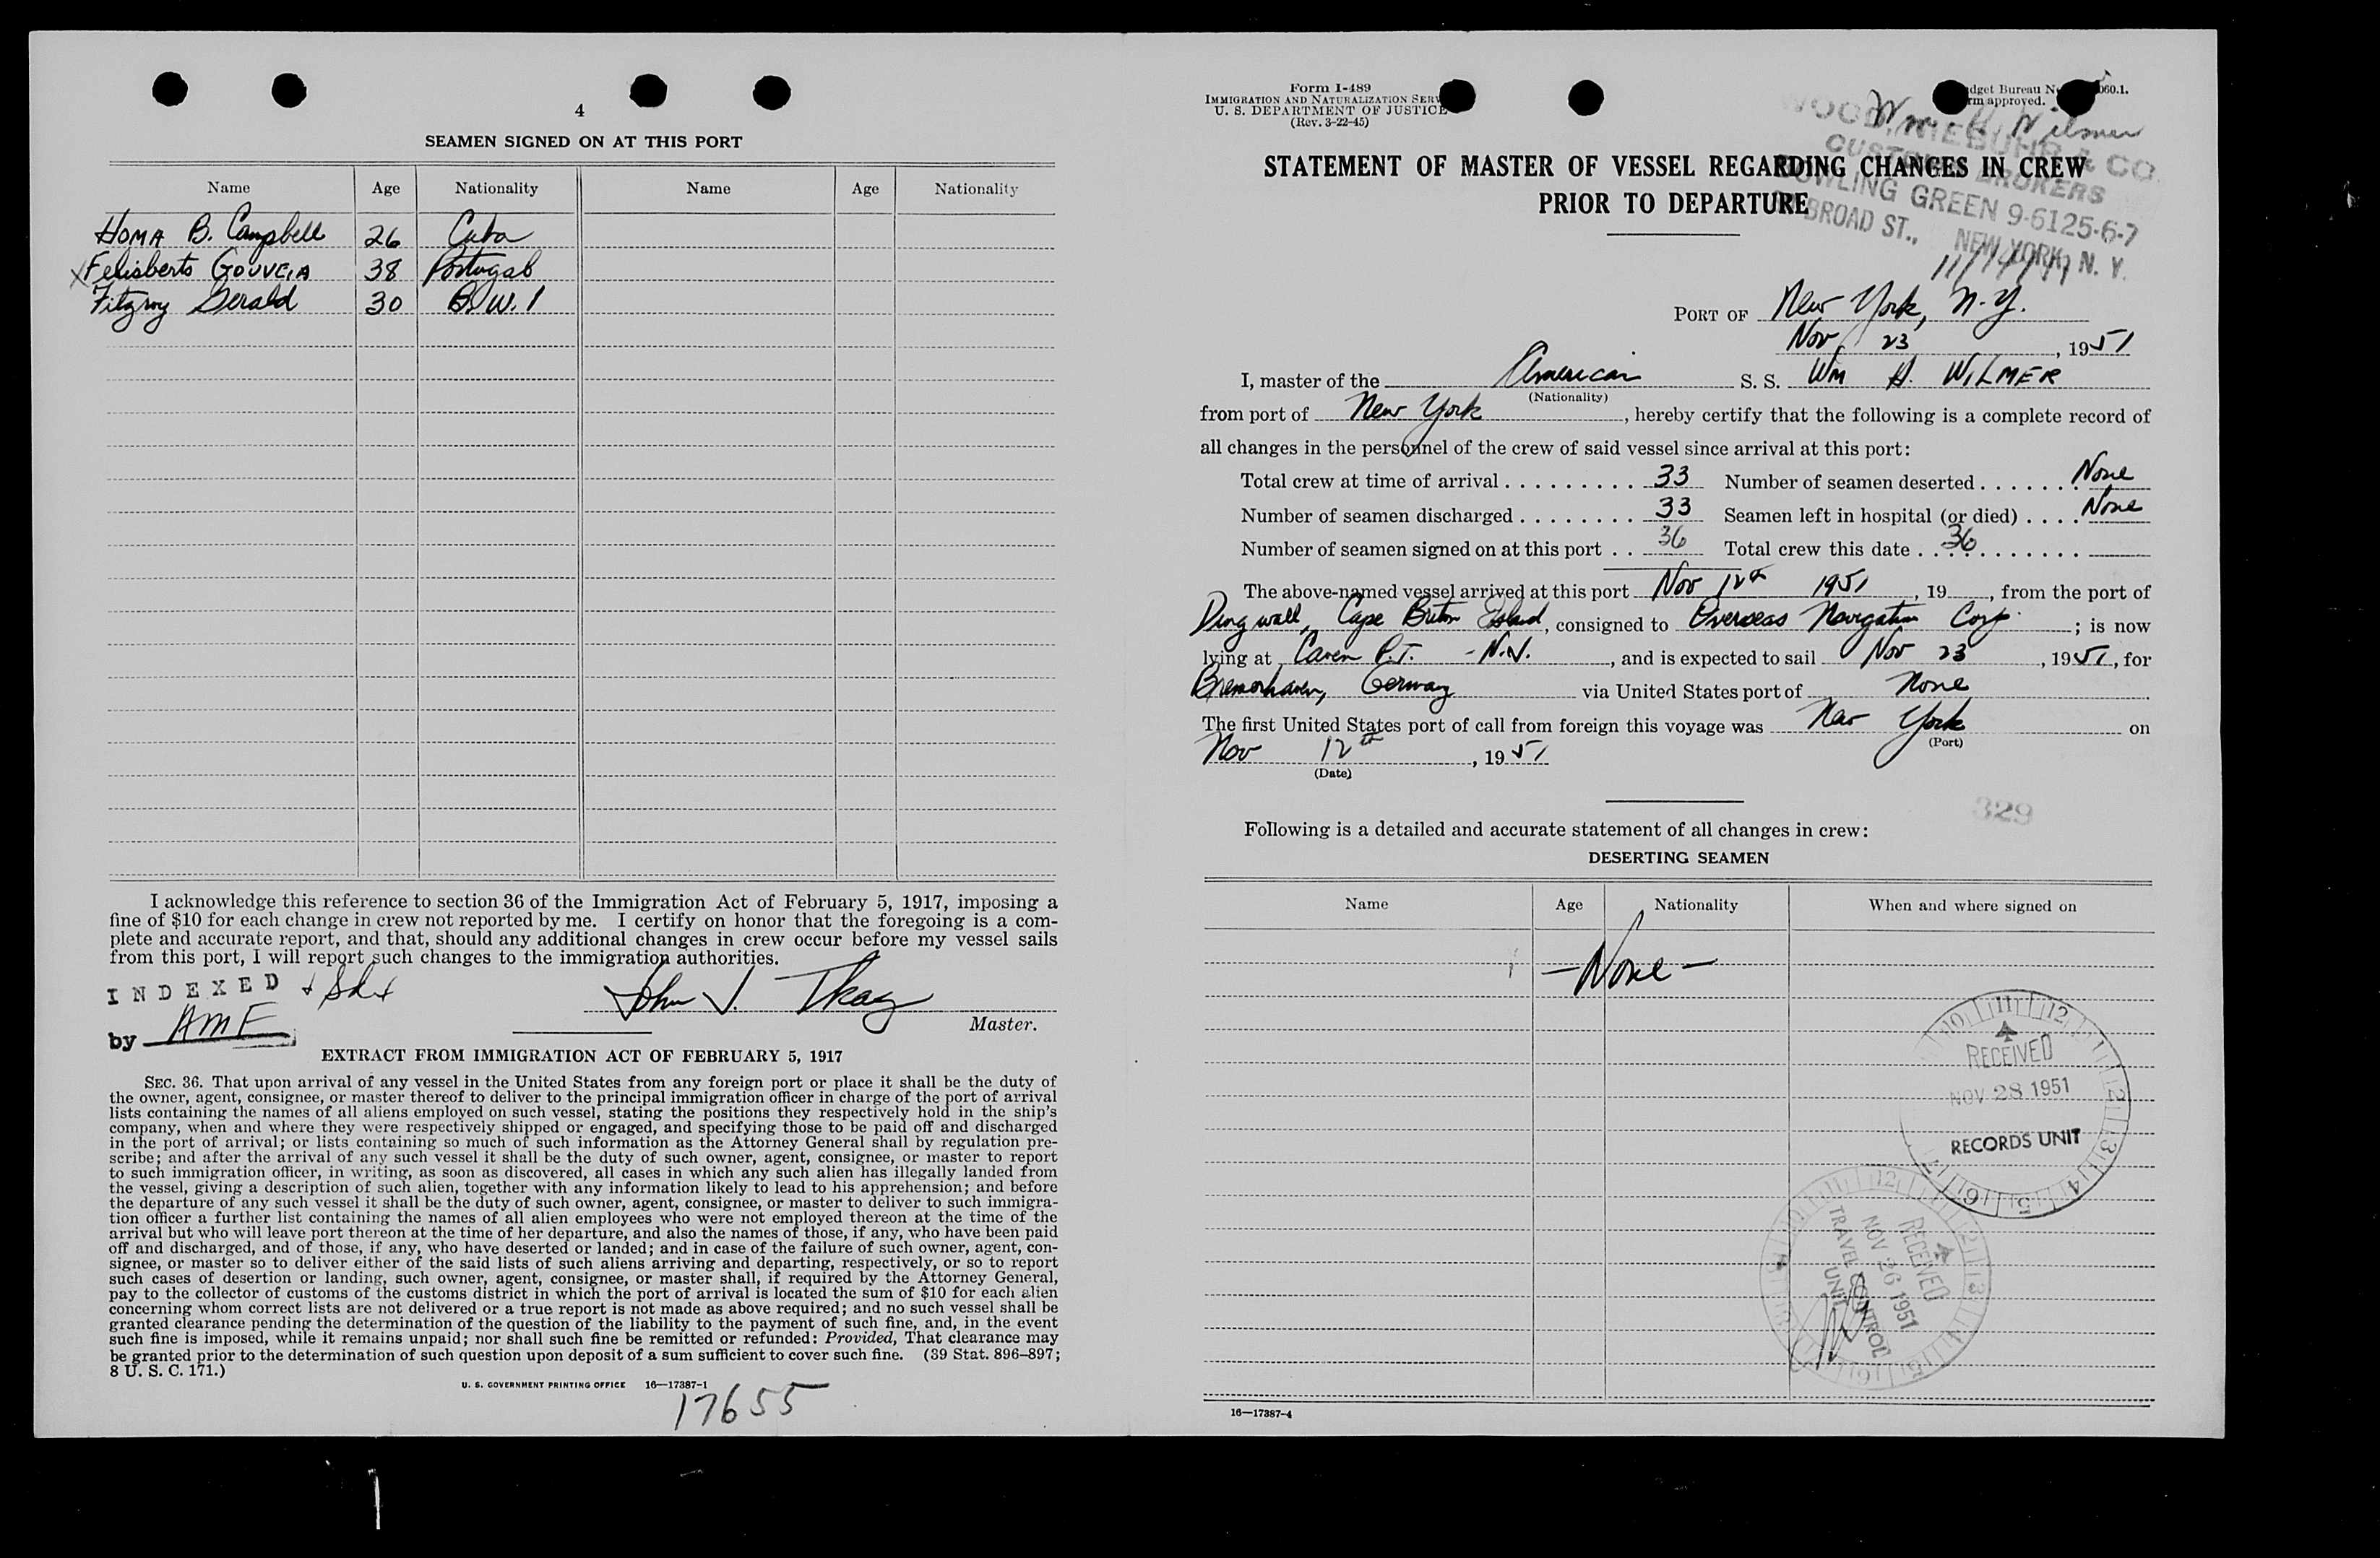 4
SEAMEN SIGNED ON AT THIS PORT
Name Age Nationality Name Age Nationality
HOMA B. Campbell 26 Cuba
X Felisberto GOUVEIA 38 Portugal
Fitzroy Gerald 30 B.W.I
I acknowledge this reference to section 36 of the Immigration Act of February 5, 1917, imposing a
fine of $10 for each change in crew not reported by me. I certify on honor that the foregoing is a com-
plete and accurate report, and that, should any additional changes in crew occur before my vessel sails
from this port, I will report such changes to the immigration authorities.
INDEXED
by AMF
John J.
Master.
EXTRACT FROM IMMIGRATION ACT OF FEBRUARY 5, 1917
SEC. 36. That upon arrival of any vessel in the United States from any foreign port or place it shall be the duty of
the owner, agent, consignee, or master thereof to deliver to the principal immigration officer in charge of the port of arrival
lists containing the names of all aliens employed on such vessel, stating the positions they respectively hold in the ship's
company, when and where they were respectively shipped or engaged, and specifying those to be paid off and discharged
in the port of arrival; or lists containing so much of such information as the Attorney General shall by regulation pre-
scribe; and after the arrival of any such vessel it shall be the duty of such owner, agent, consignee, or master to report
to such immigration officer, in writing, as soon as discovered, all cases in which any such alien has illegally landed from
the vessel, giving a description of such alien, together with any information likely to lead to his apprehension; and before
the departure of any such vessel it shall be the duty of such owner, agent, consignee, or master to deliver to such immigra-
tion officer a further list containing the names of all alien employees who were not employed thereon at the time of the
arrival but who will leave port thereon at the time of her departure, and also the names of those, if any, who have been paid
off and discharged, and of those, if any, who have deserted or landed; and in case of the failure of such owner, agent, con-
signee, or master so to deliver either of the said lists of such aliens arriving and departing, respectively, or so to report
such cases of desertion or landing, such owner, agent, consignee, or master shall, if required by the Attorney General,
pay to the collector of customs of the customs district in which the port of arrival is located the sum of $10 for each alien
concerning whom correct lists are not delivered or a true report is not made as above required; and no such vessel shall be
granted clearance pending the determination of the question of the liability to the payment of such fine, and, in the event
such fine is imposed, while it remains unpaid; nor shall such fine be remitted or refunded: Provided, That clearance may
be granted prior to the determination of such question upon deposit of a sum sufficient to cover such fine. (39 Stat. 896-897;
8 U. S. C. 171.)
U. S. GOVERNMENT PRINTING OFFICE 16—17387-1
17655
Form I-489
IMMIGRATION AND NATURALIZATION
U. S. DEPARTMENT OF JUSTICE
(Rev. 3-22-45)
Bureau 
approved.
Wm. H. Wilmer
& CO.
CUSTOM BROKERS
BOWLING GREEN 9-6125-6-7
BROAD ST., NEW YORK, N. Y.
STATEMENT OF MASTER OF VESSEL REGARDING CHANGES IN CREW
PRIOR TO DEPARTURE
PORT OF New York, N.Y.
Nov 23, 1951
I, master of the American S. S. Wm H. WILMER
(Nationality)
from port of New York, hereby certify that the following is a complete record of
all changes in the personnel of the crew of said vessel since arrival at this port:
Total crew at time of arrival . . . . . . . . . . 33 Number of seamen deserted . . . . . . . None
Number of seamen discharged . . . . . . . . 33 Seamen left in hospital (or died) . . . . None
Number of seamen signed on at this port . . 36 Total crew this date . . . . . . . . . . . 36
The above-named vessel arrived at this port Nov 12th 1951, 19, from the port of
Dingwall, Cape Breton Island, consigned to Overseas Navigation Corp.; is now
lying at Caven P.T. - N.J., and is expected to sail Nov 23, 1951, for
Bremerhaven, Germany via United States port of None
The first United States port of call from foreign this voyage was New York on
(Port)
Nov 12th, 1951
(Date)
329
Following is a detailed and accurate statement of all changes in crew:
DESERTING SEAMEN
Name Age Nationality When and where signed on
- None -
RECEIVED
NOV 28 1951
RECORDS UNIT
RECEIVED
NOV 26 1951
TRAVEL CONTROL
UNIT
16—17387-4